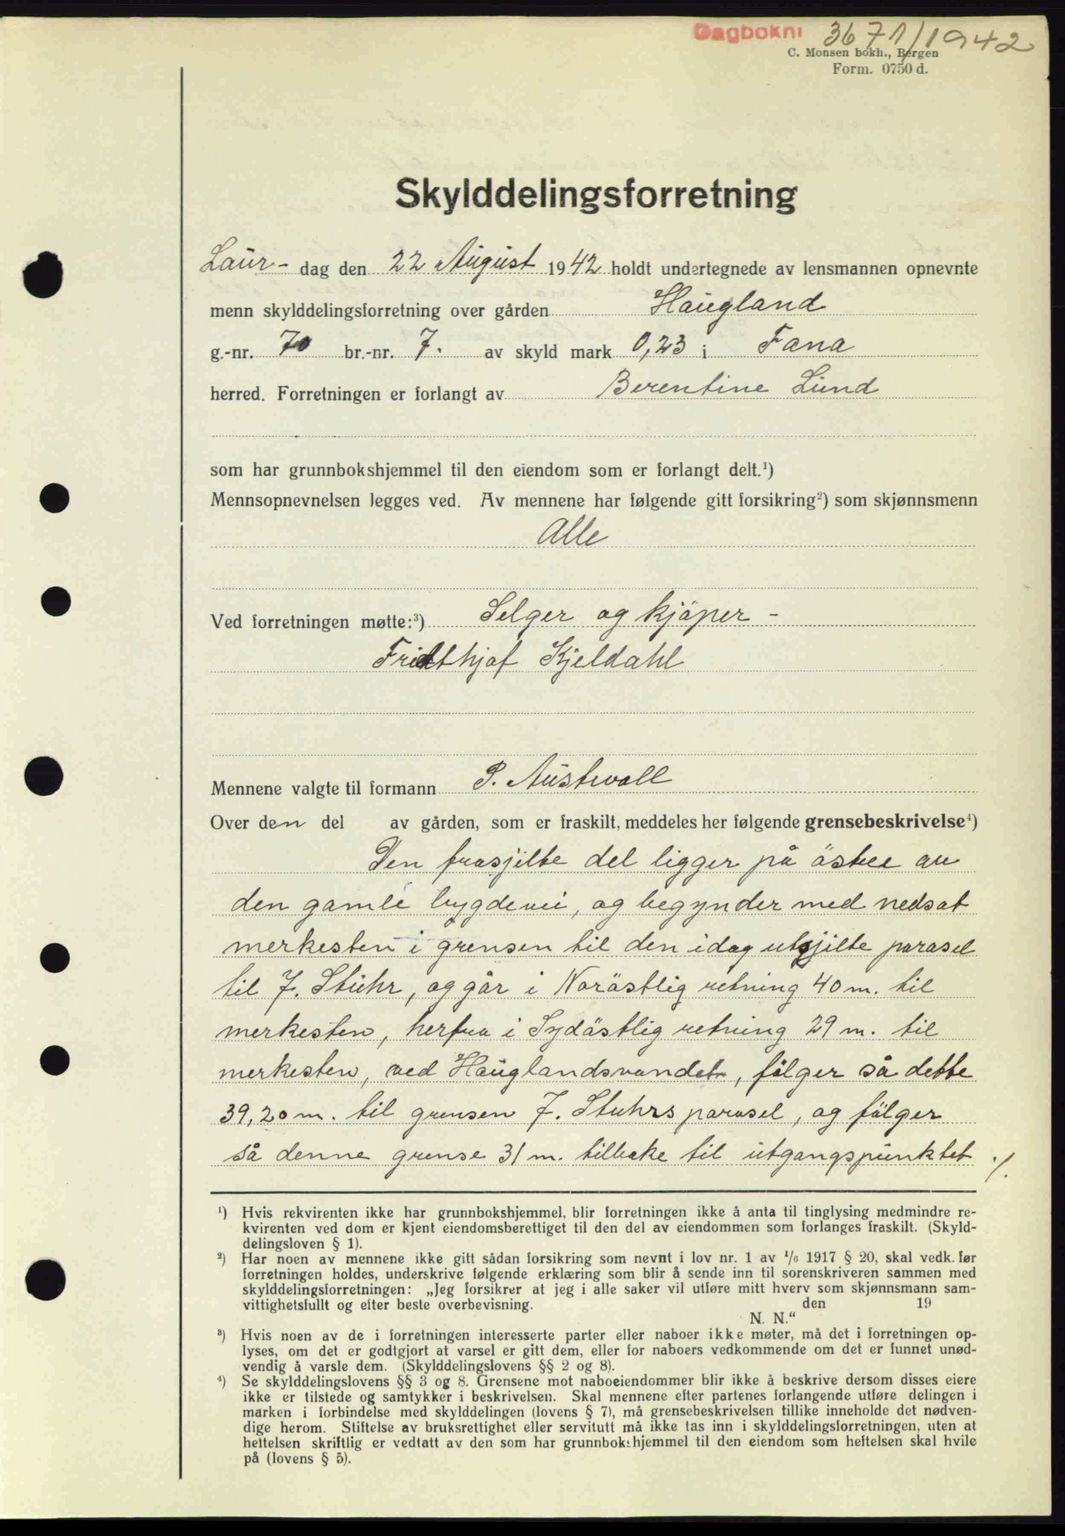 Dagboknr 3671/1942
C. Monsen bokh., Bergen
Form. 0750 d.
Skylddelingsforretning
Laur- dag den 22 August 1942 holdt undertegnede av lensmannen opnevnte
menn skylddelingsforretning over gården Haugland
g.-nr. 70 br.-nr. 7. av skyld mark 0,23 i Fana
herred. Forretningen er forlangt av Berentine Lund
som har grunnbokshjemmel til den eiendom som er forlangt delt.¹)
Mennsopnevnelsen legges ved. Av mennene har følgende gitt forsikring²) som skjønnsmenn
Alle
Ved forretningen møtte:³) Selger og kjöper -
Fridthjof Kjeldahl
Mennene valgte til formann P. Austevoll
Over den del av gården, som er fraskilt, meddeles her følgende grensebeskrivelse⁴)
Den frasjilte del ligger på östre av
den gamle bygdevei, og begynder med nedsat
merkesten i grensen til den idag utsjilte parasel
til J. Stuhr, og går i Norästlig retning 40 m. til
merkesten, herfra i Sydästlig retning 29 m. til
merkesten, ved Hauglandsvandet, fölger så dette
39,20 m. til grensen J. Stuhrs parasel, og fölger
så denne grense 31 m. tilbake til utgangspunktet ./.
¹) Hvis rekvirenten ikke har grunnbokshjemmel, blir forretningen ikke å anta til tinglysing medmindre re-
kvirenten ved dom er kjent eiendomsberettiget til den del av eiendommen som forlanges fraskilt. (Skyld-
delingsloven § 1).
²) Har noen av mennene ikke gitt sådan forsikring som nevnt i lov nr. 1 av ¹/₆ 1917 § 20, skal vedk. før
forretningen holdes, underskrive følgende erklæring som blir å sende inn til sorenskriveren sammen med
skylddelingsforretningen: „Jeg forsikrer at jeg i alle saker vil utføre mitt hverv som skjønnsmann sam-
vittighetsfullt og etter beste overbevisning. den 19
N. N.“
³) Hvis noen av de i forretningen interesserte parter eller naboer ikke møter, må det i forretningen op-
lyses, om det er godtgjort at varsel er gitt dem, eller for naboers vedkommende om det er funnet unød-
vendig å varsle dem. (Skylddelingslovens §§ 2 og 8).
⁴) Se skylddelingslovens §§ 3 og 8. Grensene mot naboeiendommer blir ikke å beskrive dersom disses eiere
ikke er tilstede og samtykker i beskrivelsen. Skal mennene efter partenes forlangende utføre delingen i
marken i forbindelse med skylddelingen (lovens § 7), må grensebeskrivelsen tillike inneholde det nødven-
dige herom. Stiftelse av bruksrettighet eller servitutt må ikke tas inn i skylddelingsforretningen, uten at
heftelsen skriftlig er vedtatt av den som har grunnbokshjemmel til den eiendom som heftelsen skal hvile
på (lovens § 5).